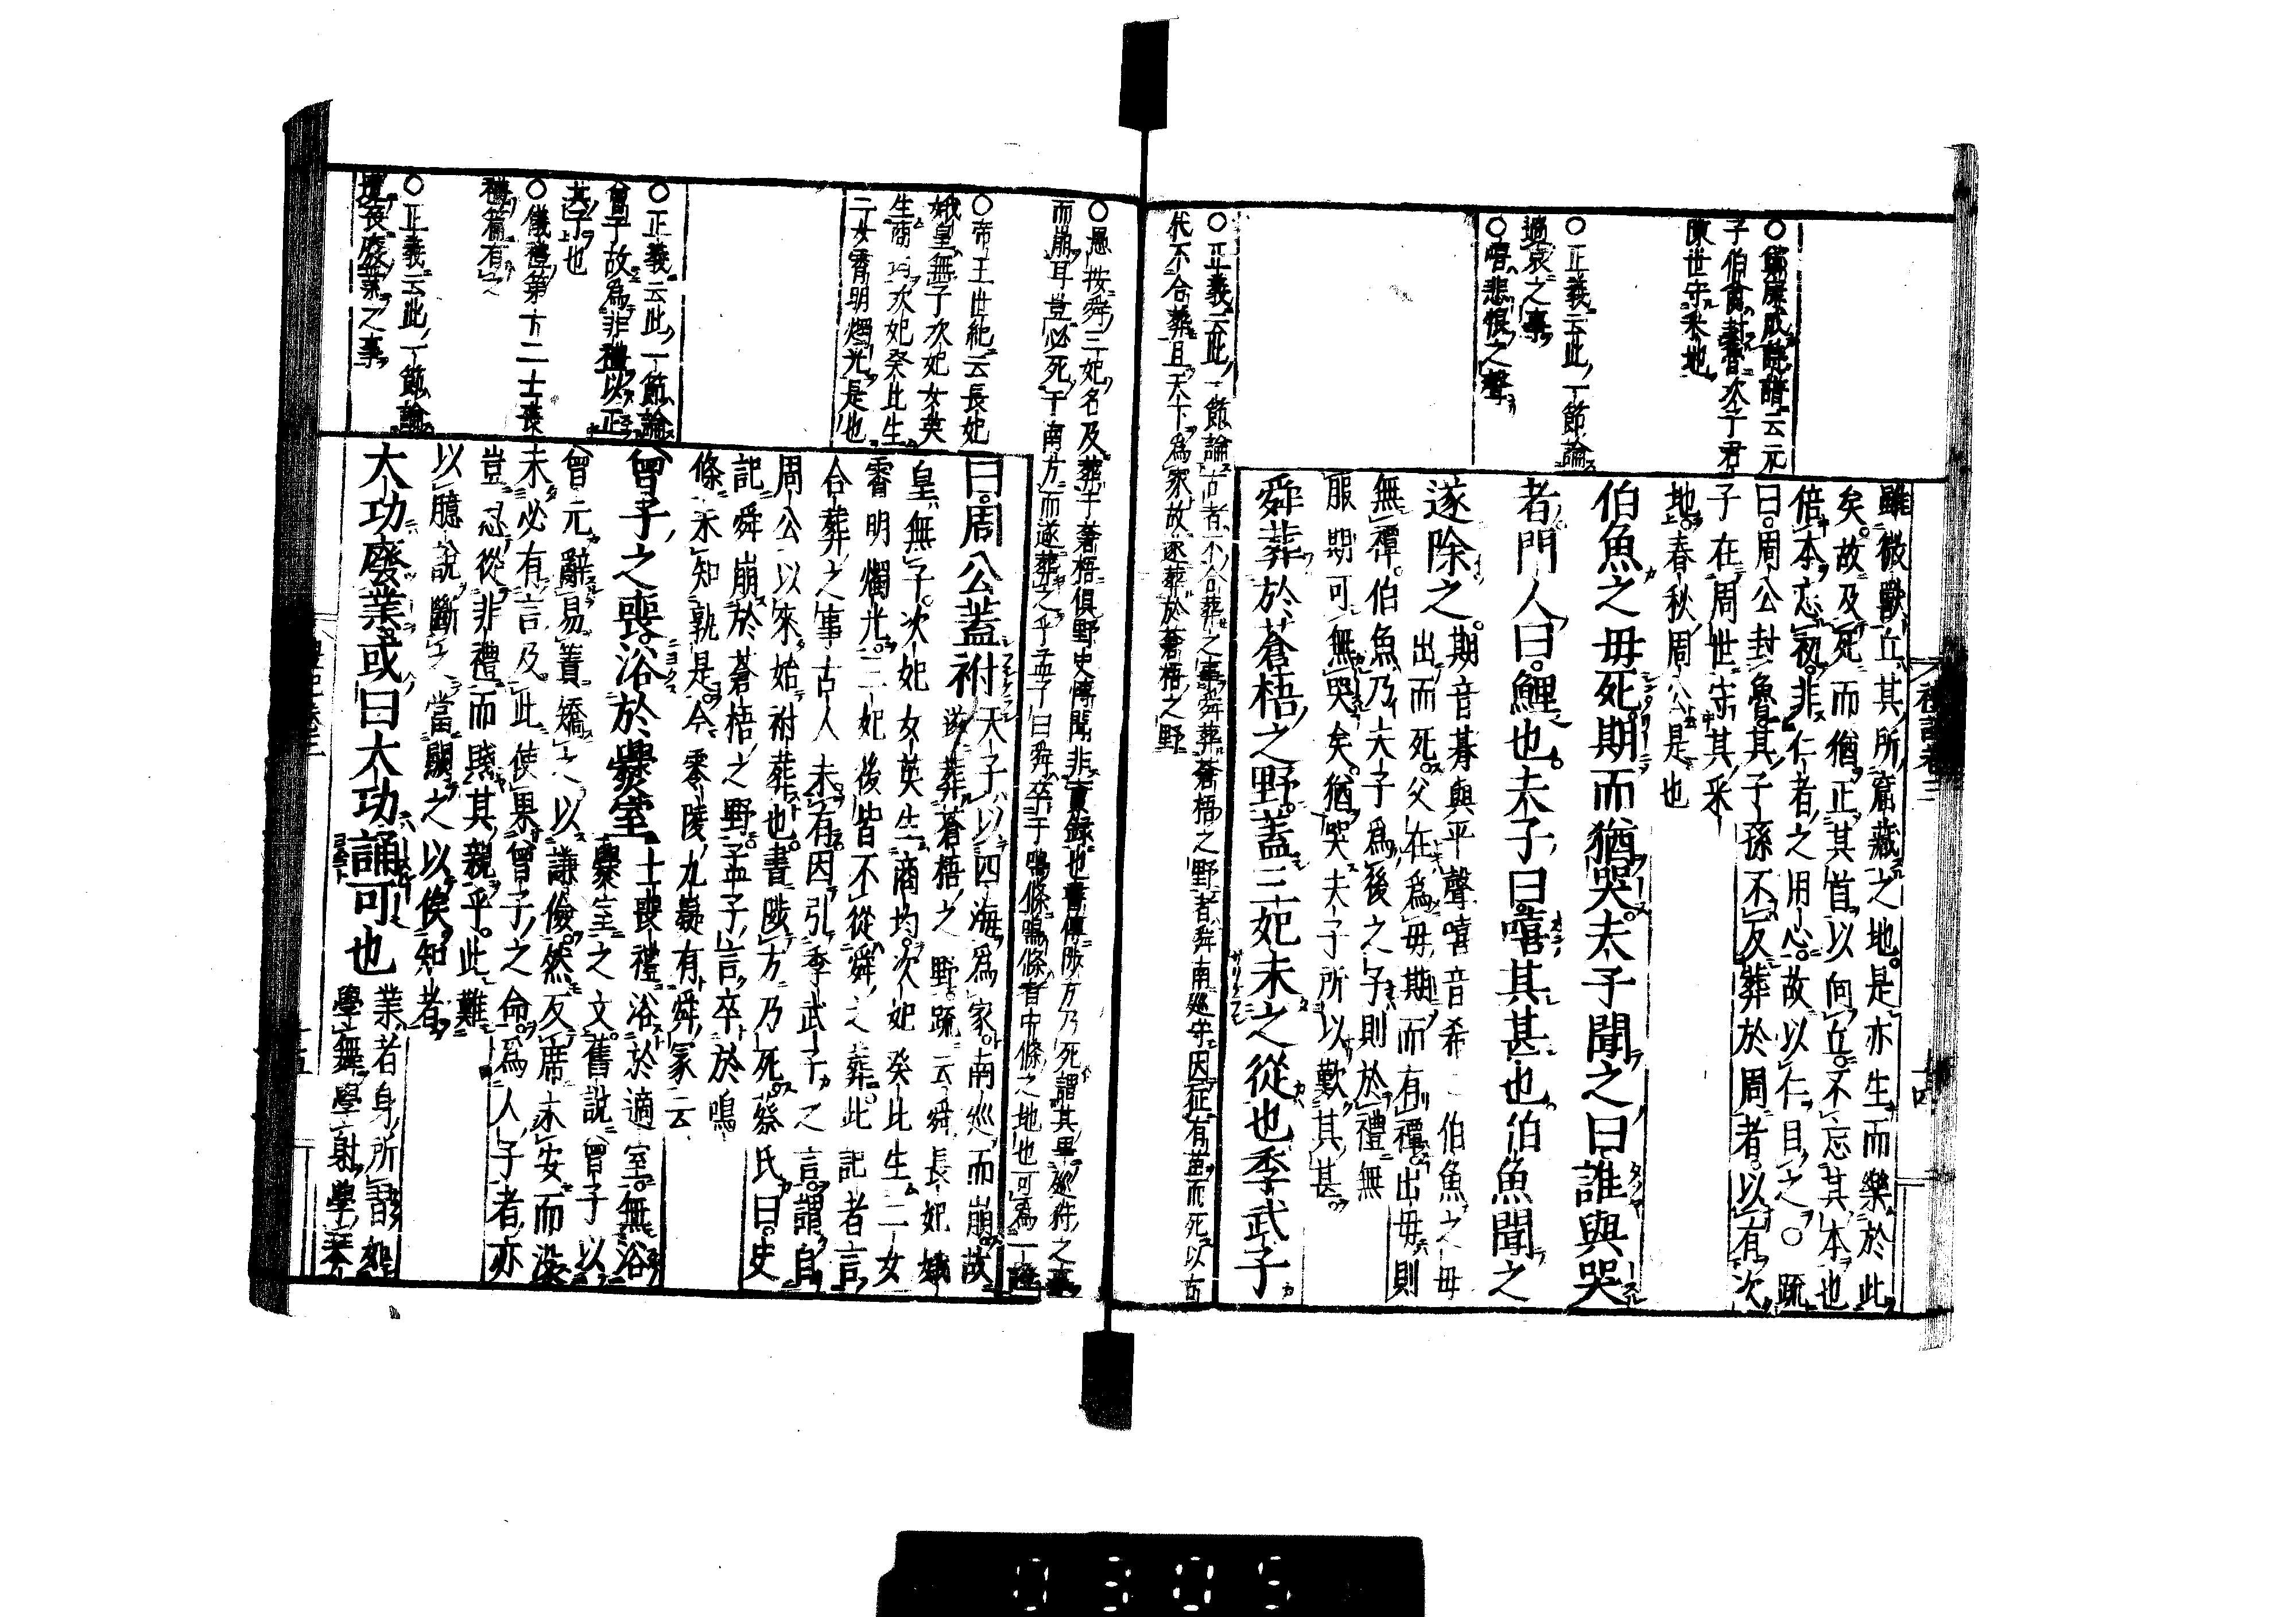 雖微獸丘其所窟藏之地是亦生而樂於此
矣故及死而猶正其首以向丘不忘其本也
倍本忘初非仁者之用心故以仁目之○疏
曰周公封魯其子孫不反葬於周者以有次
子在周世守其采
地春秋周公是也
伯魚之母死期而猶哭夫子聞之曰誰與哭
者門人曰鯉也夫子曰嘻其甚也伯魚聞之
遂除之期音朞與平聲嘻音希○伯魚之母
出而死父在為母期而有禫出母則
無禫伯魚乃夫子為後之子則於禮無
服期可無哭矣猶哭夫子所以歎其甚
舜葬於蒼梧之野蓋三妃未之從也季武子
○鄭康成詩譜云元
子伯禽封魯次子君
陳世守采地
○正義云此一節論
過哀之事
○嘻悲恨之聲
○正義云此一節論古者不合葬之事舜葬蒼梧之野者舜南巡守因征有苗而死以古
代不合葬且天下為家故遂葬於蒼梧之野
○愚按舜三妃名及葬于蒼梧俱野史傳聞非實錄也書傳陟方乃死謂其畢巡狩之
而崩耳豈必死于南方而遂葬之乎孟子曰舜卒于鳴條鳴條者中條之地也可為一
○帝王世紀云長妃
娥皇無子次妃女英
生商均次妃癸比生
二女霄明燭光是也
○正義云此一節論
曾子故為非禮以正
其子也
○儀禮第十二士喪
禮篇有之
○正義云此一節論
遭喪廢業之事
曰周公蓋祔天子以四海為家南巡而崩故
遂葬蒼梧之野疏云舜長妃娥
皇無子次妃女英生商均次妃癸比生二女
霄明燭光三妃後皆不從舜之葬此記者言
合葬之事古人未有因引季武子之言謂自
周公以來始祔葬也書陟方乃死蔡氏曰史
記舜崩於蒼梧之野孟子言卒於鳴
條未知孰是今零陵九嶷有舜冢云
曾子之喪浴於爨室士喪禮浴於適室無浴
爨室之文舊說曾子以
曾元辭易簀矯之以謙儉然反席未安而沒
未必有言及此使果曾子之命為人子者亦
豈忍從非禮而賤其親乎此難
以臆說斷之當闕之以俟知者
大功廢業或曰大功誦可也業者身所習如
學舞學射學琴